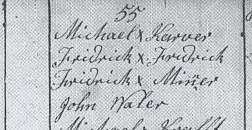 55
Michael x Karver
Fridrick x Fridrick
Fridrick x Miñer
John Waler
Michael x